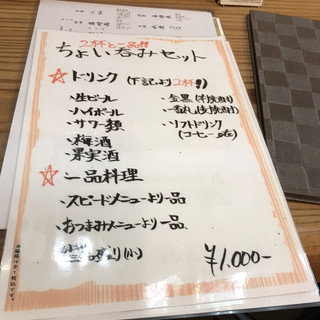 2杯と一品!!
ちょい呑みセット
☆ドリンク (下記より2杯!)
・生ビール
・ハイボール
・サワー類
・梅酒
・果実酒
・金黒(芋焼酎)
・ソフトドリンク
(コーヒー etc)
☆一品料理
・スピードメニューより一品
・おつまみメニューより一品
三品盛り(小)
¥1,000-